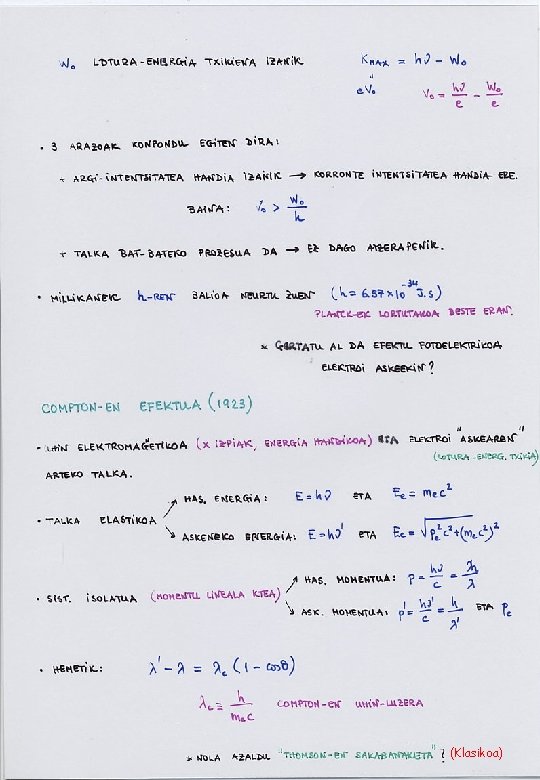 W₀ LOTURA-ENERGIA TXIKIENA IZANIK K_MAX = hν - W₀
eV₀ V₀ = hν/e - W₀/e
• 3 ARAZOAK KONPONDU EGITEN DIRA:
+ ARGI-INTENTSITATEA HANDIA IZANIK → KORRONTE INTENTSITATEA HANDIA ERE.
BAINA: ν₀ > W₀/h
+ TALKA BAT-BATEKO PROZESUA DA → EZ DAGO ATZERAPENIK.
• MILLIKANEK h-REN BALIOA NEURTU ZUEN (h = 6.57×10⁻³⁴ J.s)
PLANCK-EK LORTUTAKOA BESTE ERAN.
* GERTATU AL DA EFEKTU FOTOELEKTRIKOA
ELEKTROI ASKEEKIN?
COMPTON-EN EFEKTUA (1923)
• UHIN ELEKTROMAGNETIKOA (X IZPIAK, ENERGIA HANDIKOA) ETA ELEKTROI "ASKEAREN"
(LOTURA-ENERG. TXIKIA)
ARTEKO TALKA.
• TALKA ELASTIKOA
HAS. ENERGIA: E = hν ETA Eₑ = mₑc²
ASKENEKO ENERGIA: E = hν' ETA Eₑ = √(pₑ²c² + (mₑc²)²)
• SIST. ISOLATUA (MOMENTU LINEALA KTEA)
HAS. MOMENTUA: p = hν/c = h/λ
ASK. MOMENTUA: p' = hν'/c = h/λ' ETA pₑ
• HEMETIK: λ' - λ = λc (1 - cosθ)
λc ≡ h/mₑc COMPTON-EN UHIN-LUZERA
* NOLA AZALDU "THOMSON-EN SAKABANAKETA"? (Klasikoa)